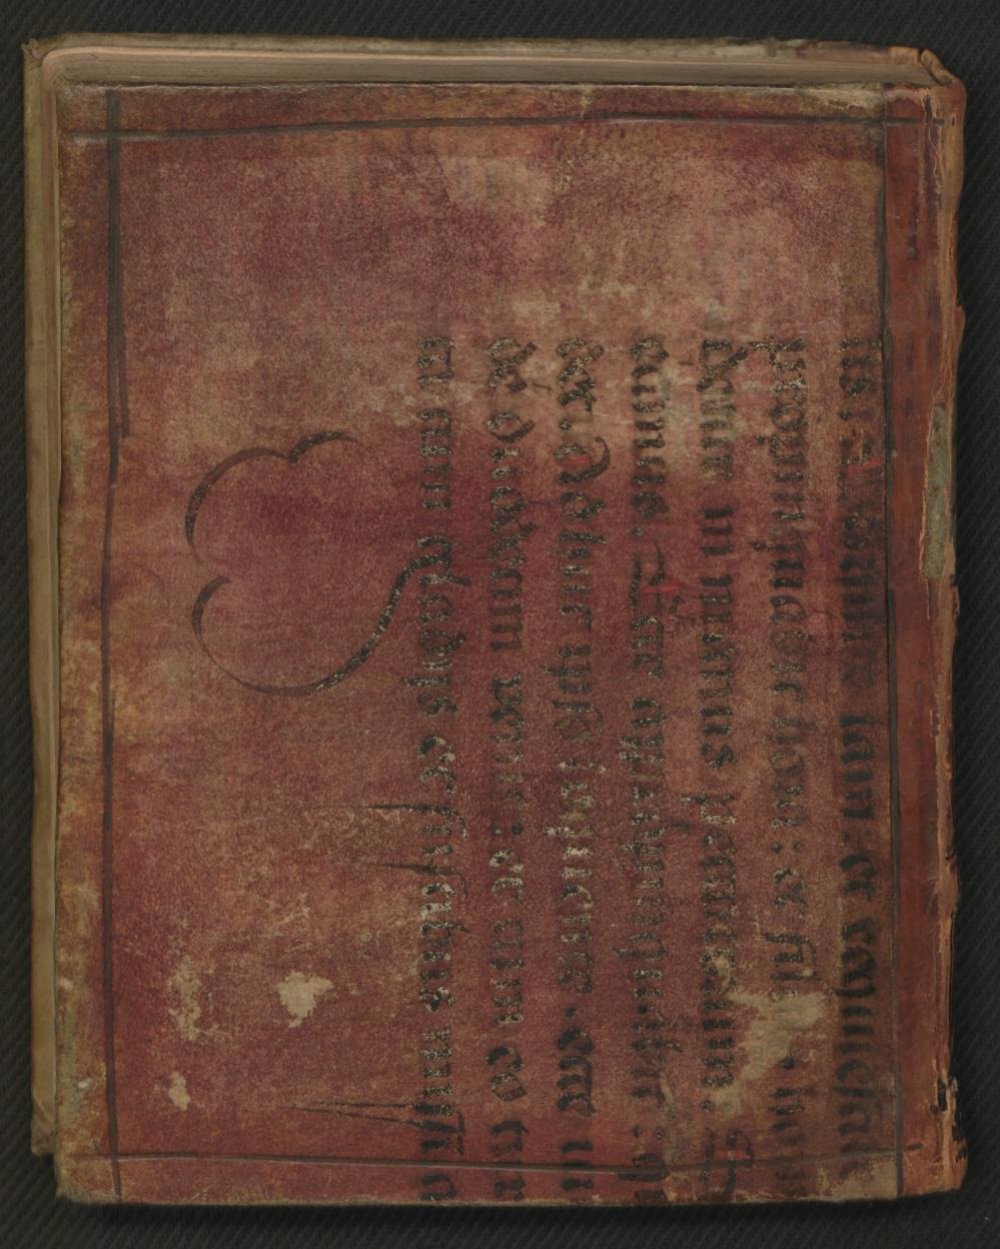 Dormite iam: et requiescite
propinquavit hora: et filius ho
detur in manus peccatorum: S
eamus: Ecce appropinquavit
det. Adhuc ipso loquente: ecce iu
de duodecim venit: et cum eo tu
cum gladiis et fustibus missi